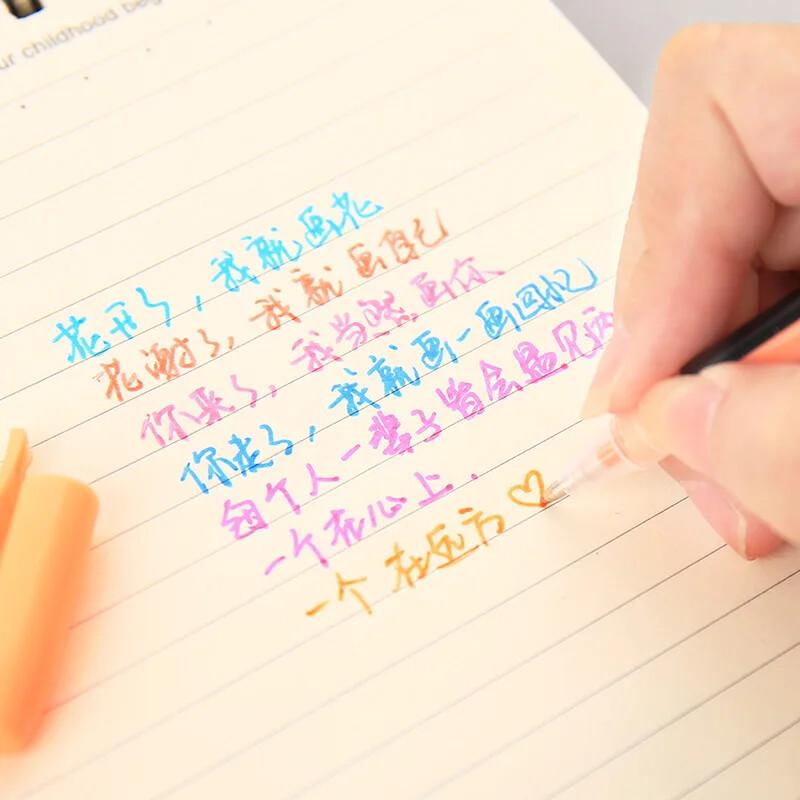 ur childhood beg
花开了，我就画花
花谢了，我就画自己
你来了，我当然画你
你走了，我就画一画回忆
每个人一辈子皆会遇见两
一个在心上.
一个在远方♡